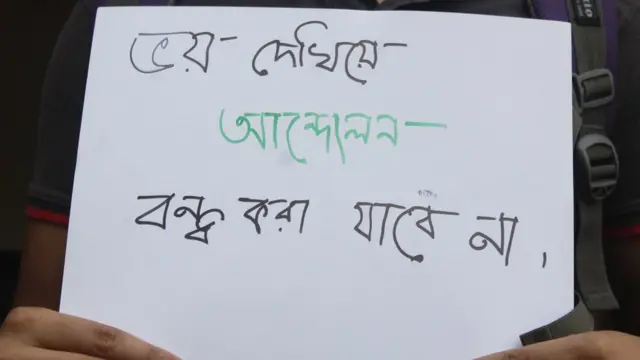 ভয় দেখিয়ে
আন্দোলন
বন্ধ করা যাবে না,